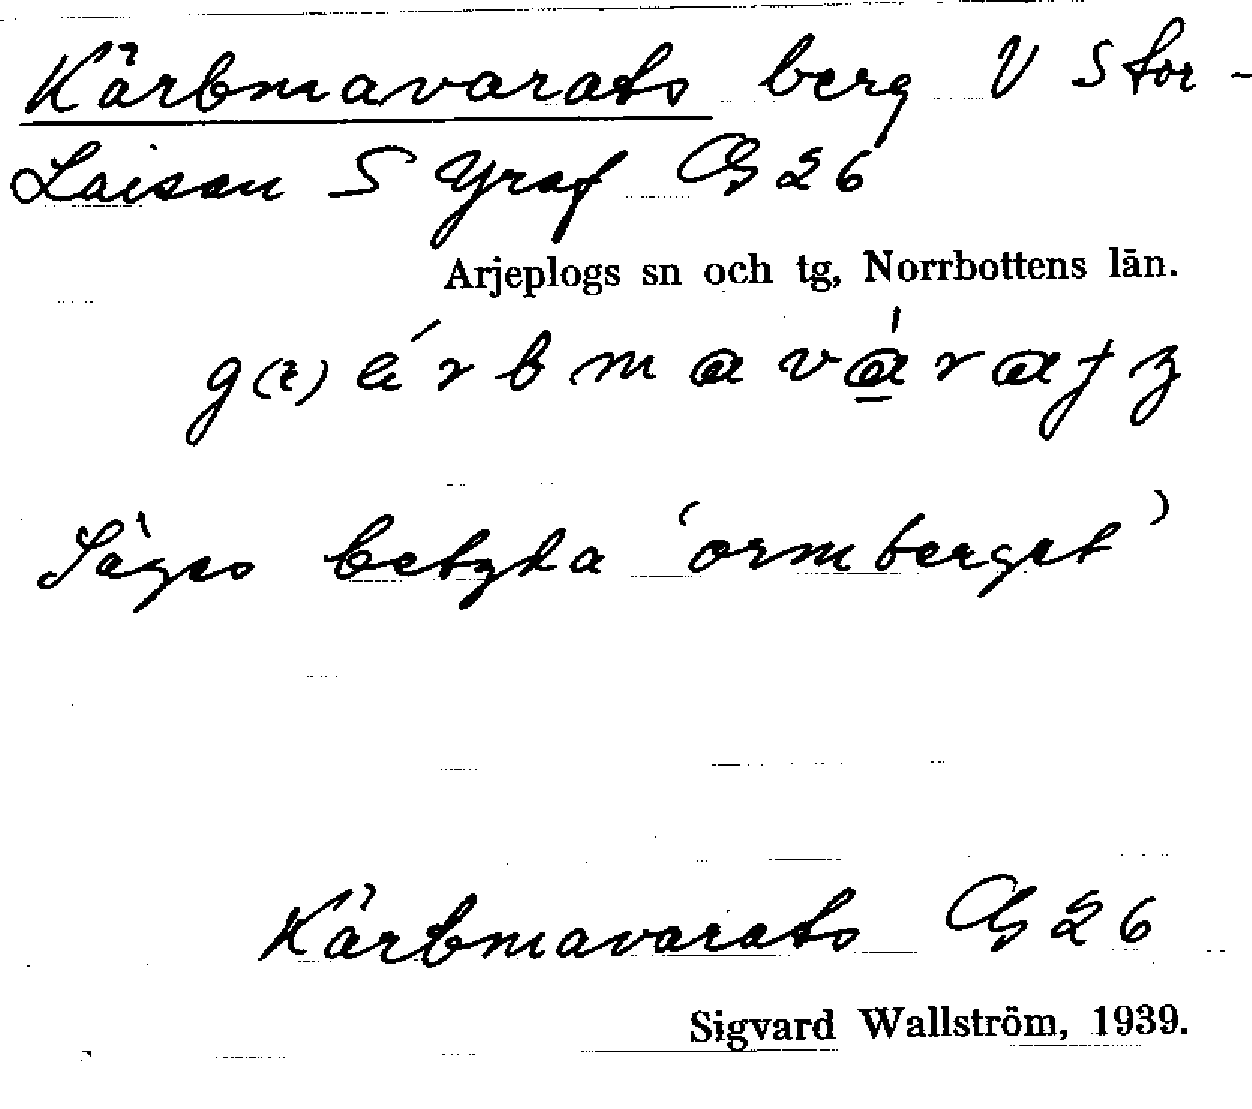 Kärbmavarats berg V Stor-
Laisan S Yraf Gb 26
Arjeplogs sn och tg, Norrbottens län.
Säges betyda 'ormberget'
Kärbmavarats Gb 26
Sigvard Wallström, 1939.